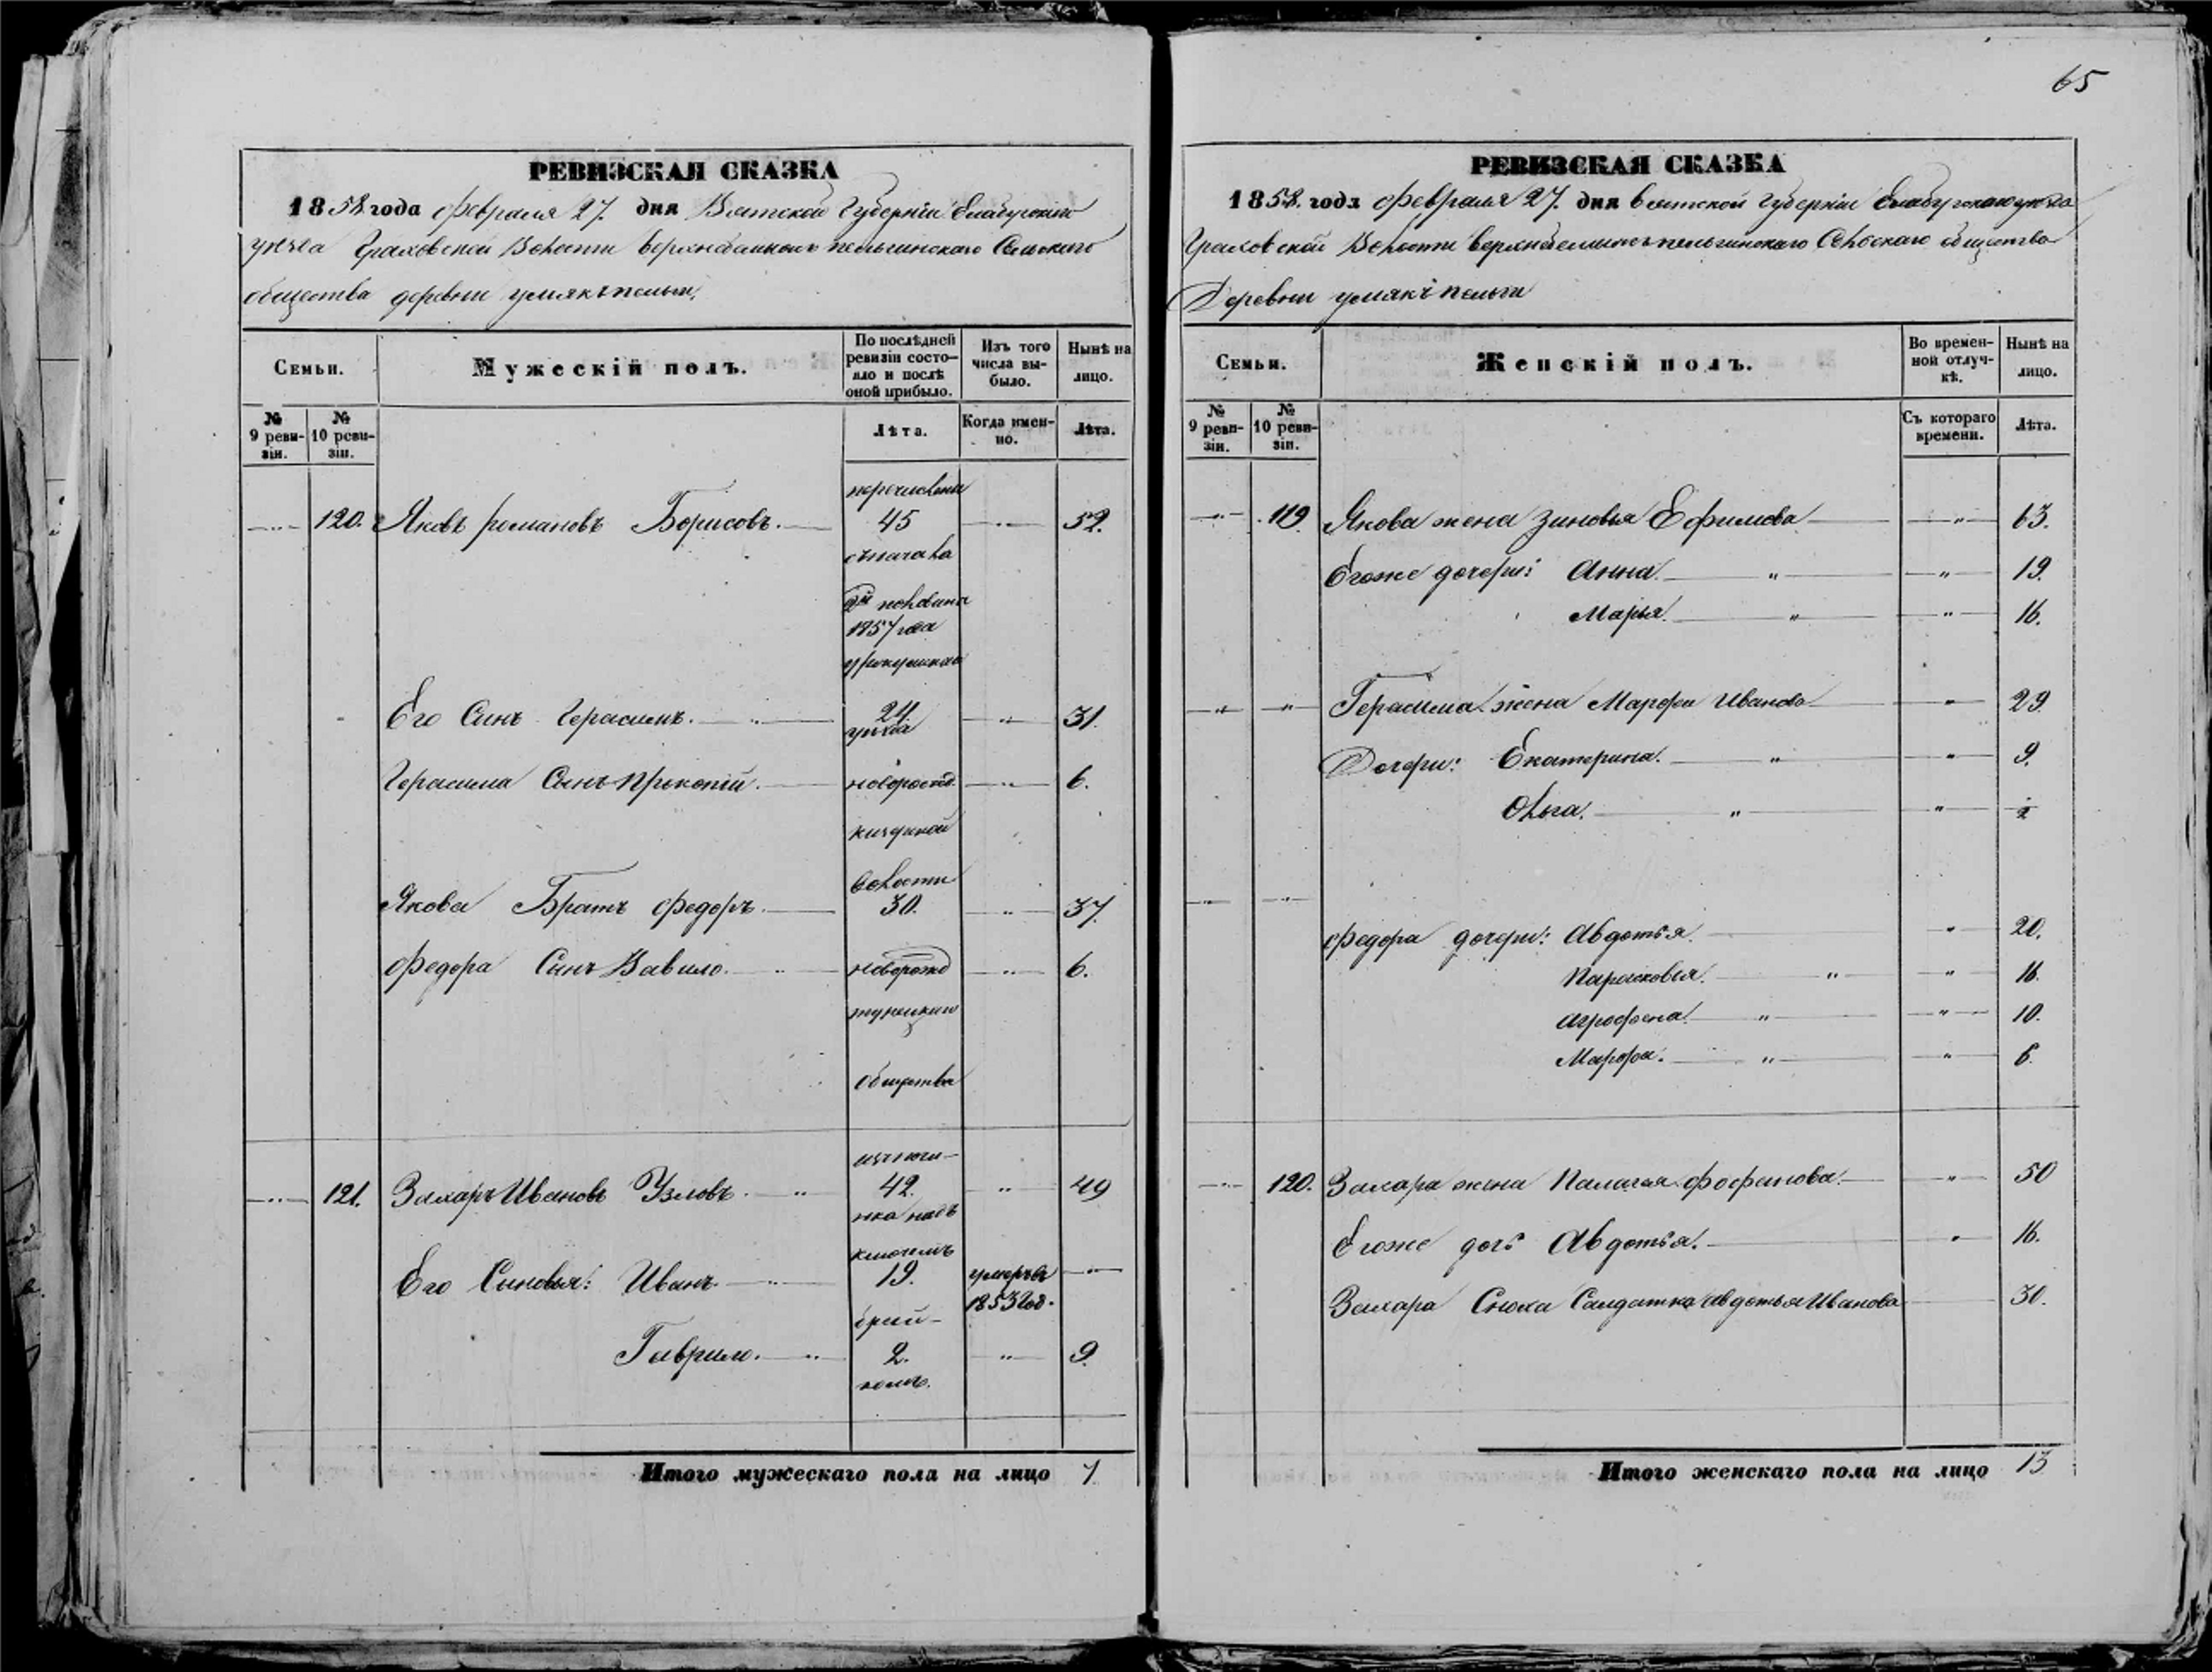 65
РЕВИЗСКАЯ СКАЗКА
1858 года февраля 27. дня Вятской Губерніи Елабугскаго
уѣзда Граховской Волости Сельскаго
общества деревни
Семьи.
Мужескій полъ.
По послѣдней ревизіи состо-яло и послѣ оной прибыло.
Изъ того числа вы-было.
Нынѣ на лицо.
№ 9 реви-зіи.
№ 10 реви-зіи.
Лѣта.
Когда имен-но.
Лѣта.
перечислены
120. Яковъ Романовъ Борисовъ. 45 52.
сначала
2й половина
1857 года
Его Сынъ Герасимъ. 24. 31.
уѣзда
Герасима Сынъ Прокопій. новорожд. 6.
Волости
Якова Братъ Федоръ. 30. 37.
Федора Сынъ Вавило. новорожд 6.
общества
121. Захаръ Ивановъ Узловъ. 42. 49
нка надъ
ключемъ
Его Сыновья: Иванъ. 19. умеръ въ
1853 год.
Гаврило. 2. 9.
Итого мужескаго пола на лицо 7
РЕВИЗСКАЯ СКАЗКА
1858. года февраля 27. дня Вятской Губерніи Елабугскаго уѣзда
Граховской Волости Сельскаго общества
Деревни
Семьи.
Женскій полъ.
Во времен-ной отлуч-кѣ.
Нынѣ на лицо.
№ 9 реви-зіи.
№ 10 реви-зіи.
Съ котораго времени.
Лѣта.
119. Якова жена Зиновья Ефимова 63.
Егоже дочери: Анна. 19.
Марья. 16.
Герасима жена Марфа Иванова 29
Дочери: Екатерина. 9.
Ольга.
Федора дочери: Авдотья. 20.
Парасковья. 16.
Агрофена. 10.
Марфа. 6.
120. Захара жена Палагея 50
Егоже дочь Авдотья. 16.
Захара Сноха Салдатка Авдотья Иванова 30.
Итого женскаго пола на лицо 13